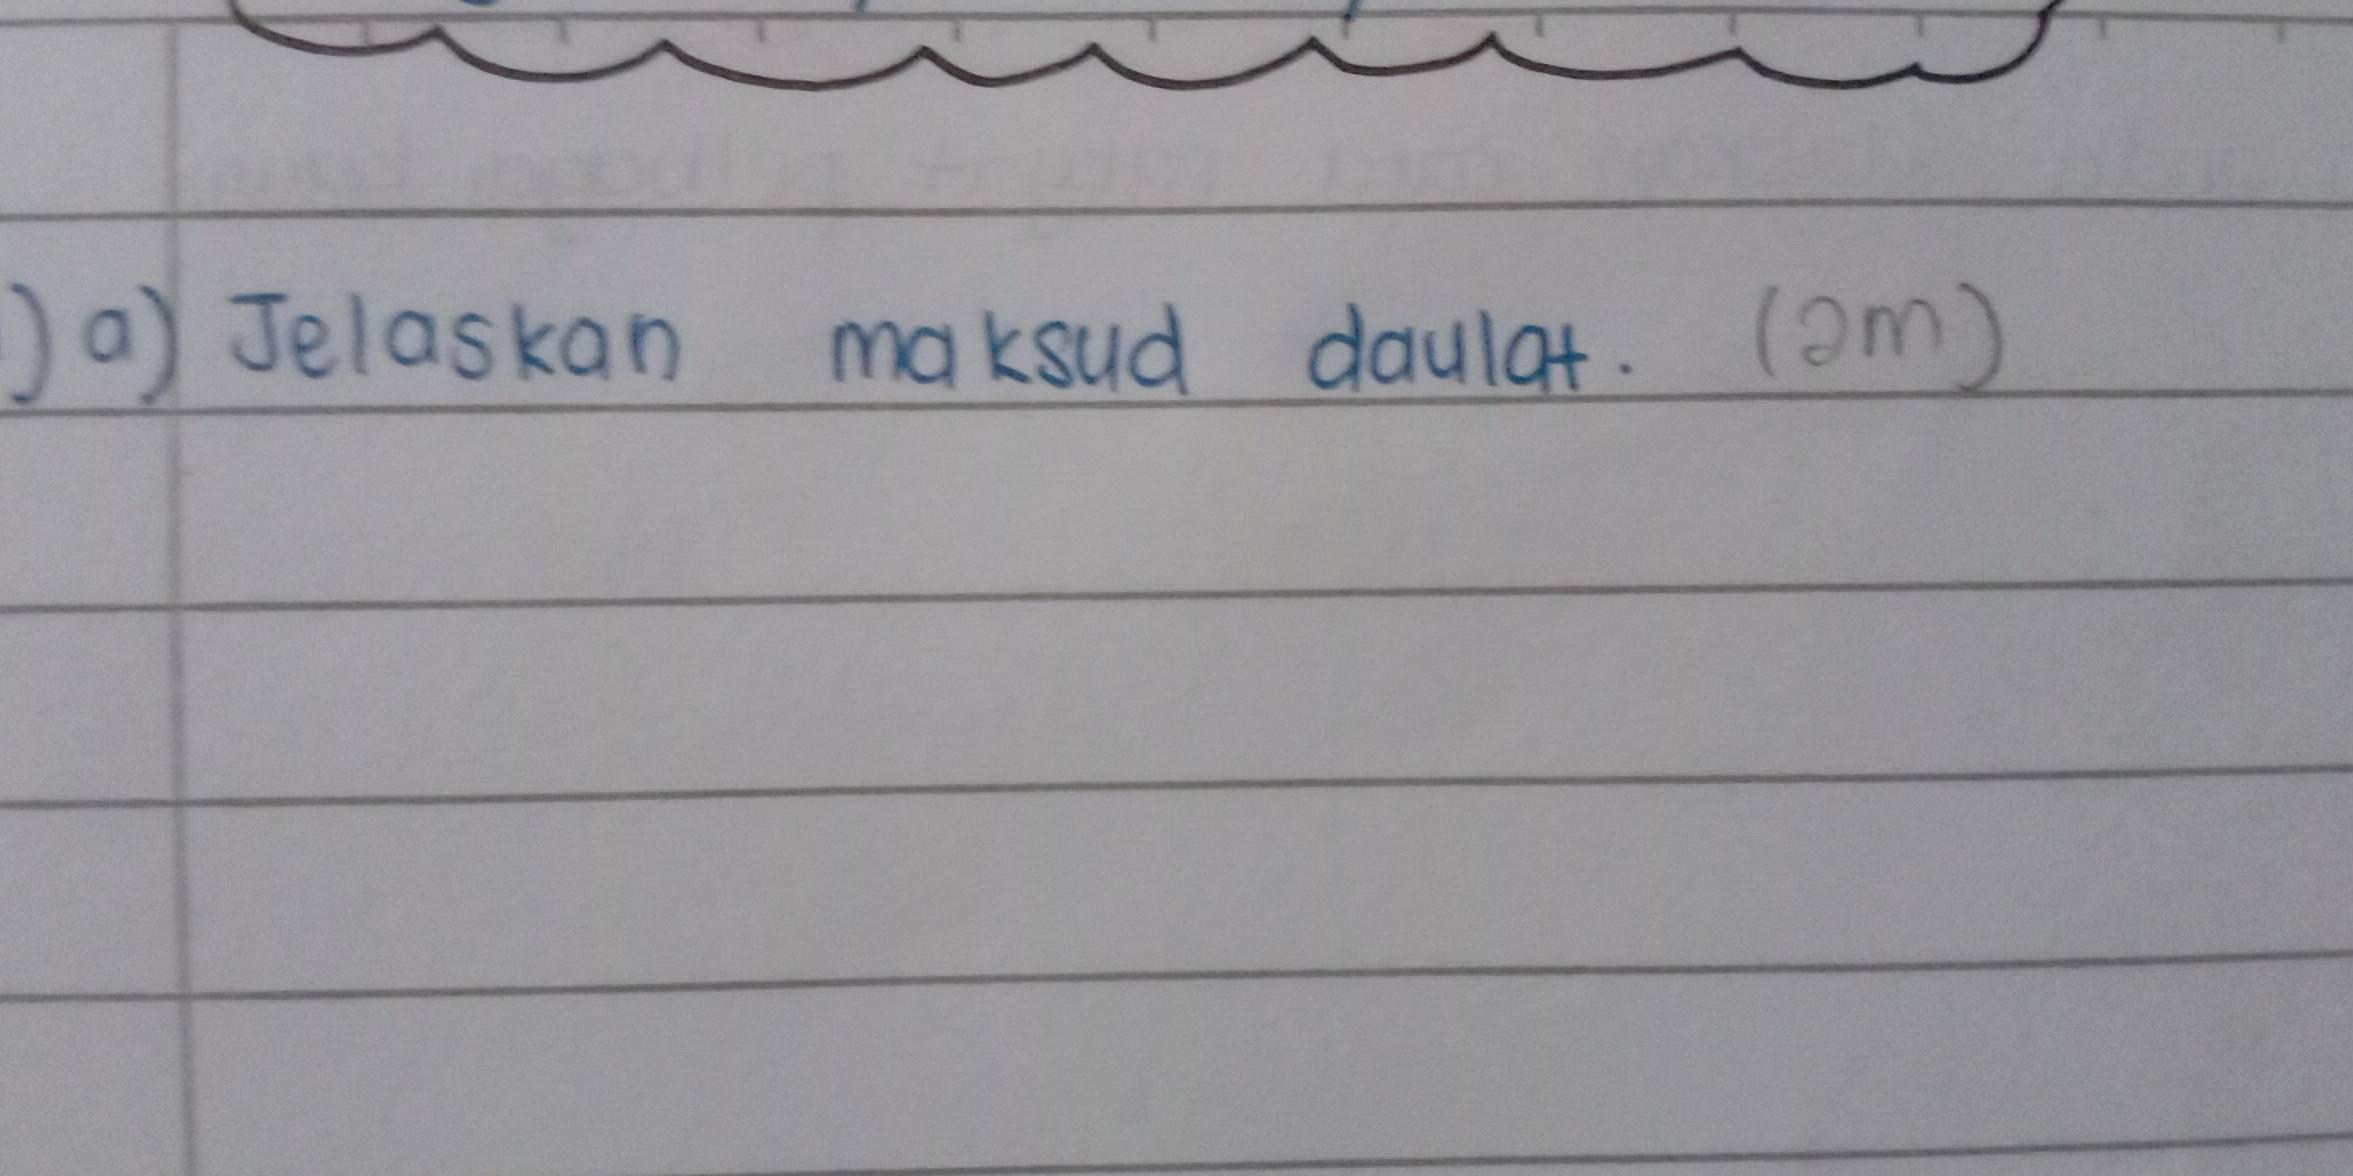 ) a) Jelaskan maksud daulat. (2m)